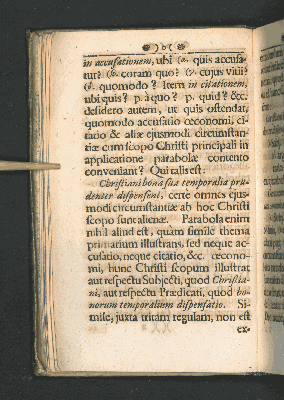 in accusationem, ubi (α. quis accusa-
tur? (β. coram quo? (γ. cujus vitii?
(δ. quomodo? Item in citationem,
ubi quis? p. à quo? p. quid? &c.
desidero autem, ut quis ostendat,
quomodo accusatio œconomi, ci-
tatio & aliæ ejusmodi circumstan-
tiæ cum scopo Christi principali in
applicatione parabolæ contento
conveniant? Qui talis est:
Christiani bona sua temporalia pru-
denter dispensent, certe omnes ejus-
modi circumstantiæ ab hoc Christi
scopo sunt alienæ. Parabola enim
nihil aliud est, quam simile thema
primarium illustrans, sed neque ac-
cusatio, neque citatio, &c. œcono-
mi, hunc Christi scopum illustrat
aut respectu Subjecti, quod Christia-
ni, aut respectu Prædicati, quod bo-
norum temporalium dispensatio. Si-
mile, juxta tritam regulam, non est
ex-